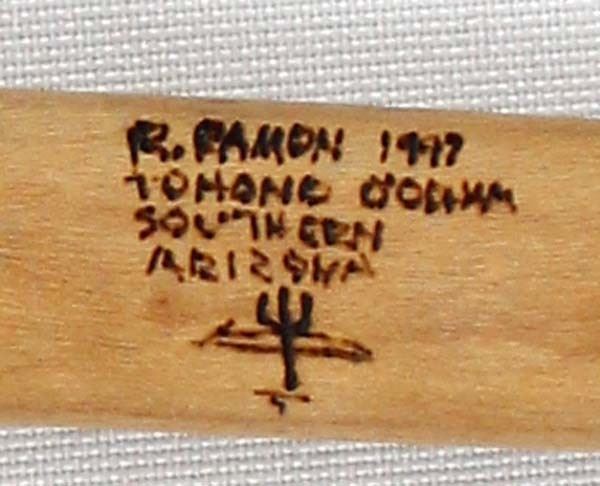 R. RAMON 1997
TOHONO O'ODHAM
SOUTHERN
ARIZONA